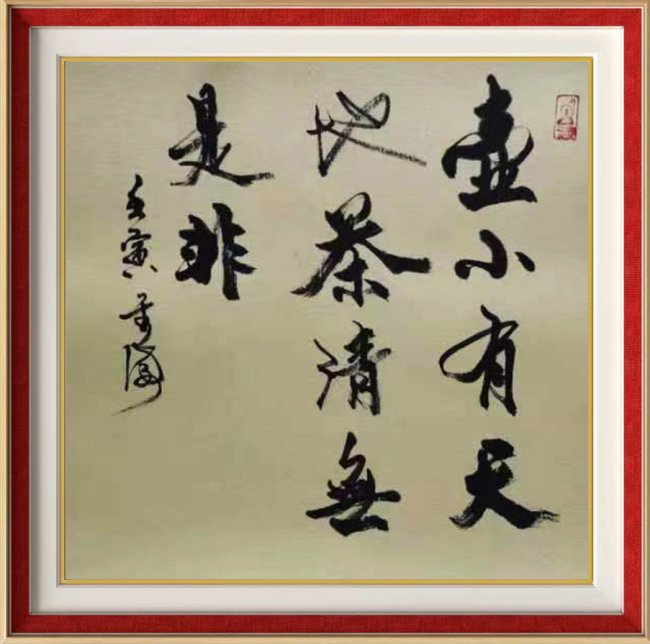 壶小有天
地茶清無
是非
壬寅